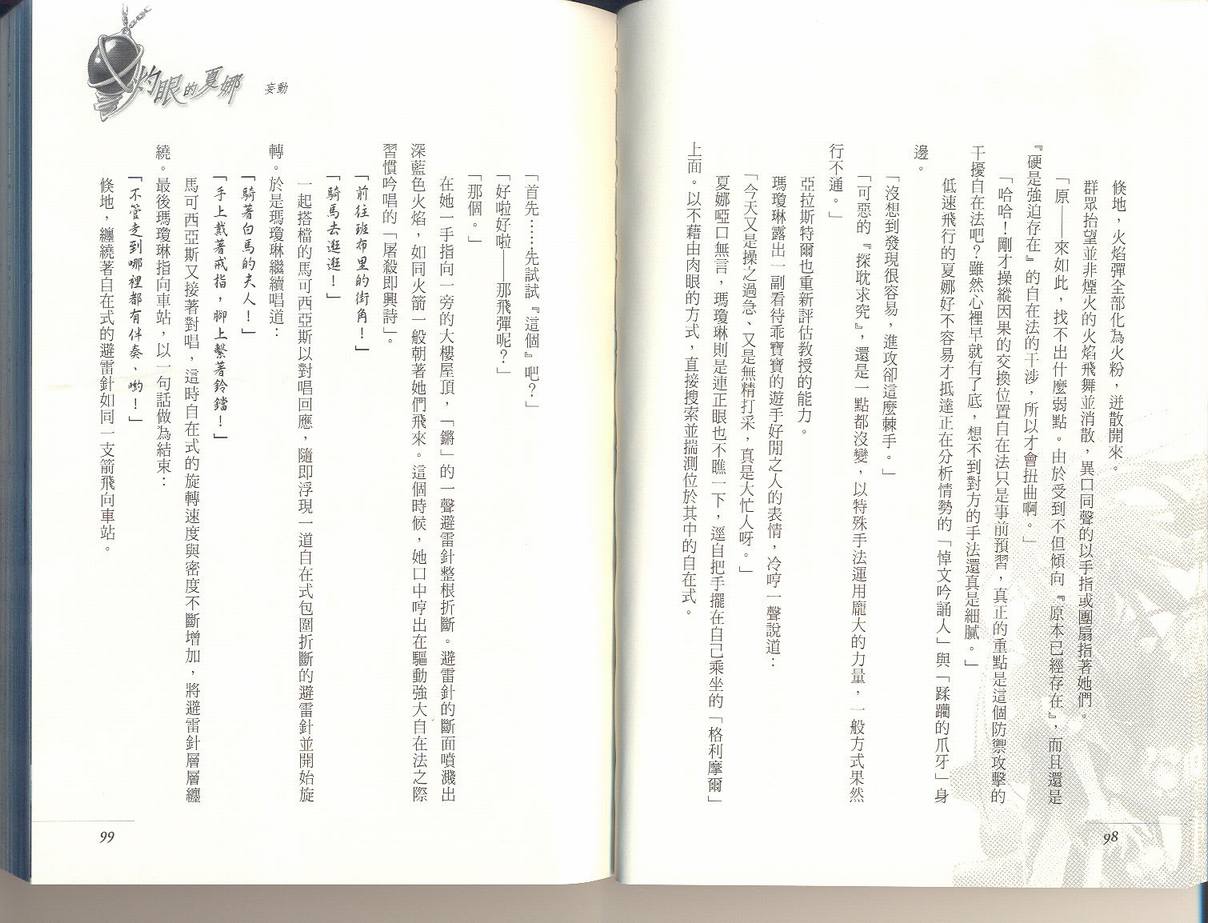 倏地，火焰彈全部化為火粉，迸散開來。
群眾抬望並非煙火的火焰飛舞並消散，異口同聲的以手指或團扇指著她們。
「原——來如此，找不出什麼弱點。由於受到不但傾向『原本已經存在』，而且還是
『硬是強迫存在』的自在法的干涉，所以才會扭曲啊。」
「哈哈！剛才操縱因果的交換位置自在法只是事前預習，真正的重點是這個防禦攻擊的
干擾自在法吧？雖然心裡早就有了底，想不到對方的手法還真是細膩。」
低速飛行的夏娜好不容易才抵達正在分析情勢的「悼文吟誦人」與「蹂躪的爪牙」身
邊。
「沒想到發現很容易，進攻卻這麼棘手。」
「可惡的『探耽求究』，還是一點都沒變，以特殊手法運用龐大的力量，一般方式果然
行不通。」
亞拉斯特爾也重新評估教授的能力。
瑪瓊琳露出一副看待乖寶寶的遊手好閒之人的表情，冷哼一聲說道：
「今天又是操之過急、又是無精打采，真是大忙人呀。」
夏娜啞口無言，瑪瓊琳則是連正眼也不瞧一下，逕自把手擺在自己乘坐的「格利摩爾」
上面。以不藉由肉眼的方式，直接搜索並揣測位於其中的自在式。
98
灼眼的夏娜
妄動
「首先……先試試『這個』吧？」
「好啦好啦——那飛彈呢？」
「那個。」
在她一手指向一旁的大樓屋頂，「鏘」的一聲避雷針整根折斷。避雷針的斷面噴濺出
深藍色火焰，如同火箭一般朝著她們飛來。這個時候，她口中哼出在驅動強大自在法之際
習慣吟唱的「屠殺即興詩」。
「前往班布里的街角！」
「騎馬去逛逛！」
一起搭檔的馬可西亞斯以對唱回應，隨即浮現一道自在式包圍折斷的避雷針並開始旋
轉。於是瑪瓊琳繼續唱道：
「騎著白馬的夫人！」
「手上戴著戒指，腳上繫著鈴鐺！」
馬可西亞斯又接著對唱，這時自在式的旋轉速度與密度不斷增加，將避雷針層層纏
繞。最後瑪瓊琳指向車站，以一句話做為結束：
「不管走到哪裡都有伴奏、喲！」
倏地，纏繞著自在式的避雷針如同一支箭飛向車站。
99